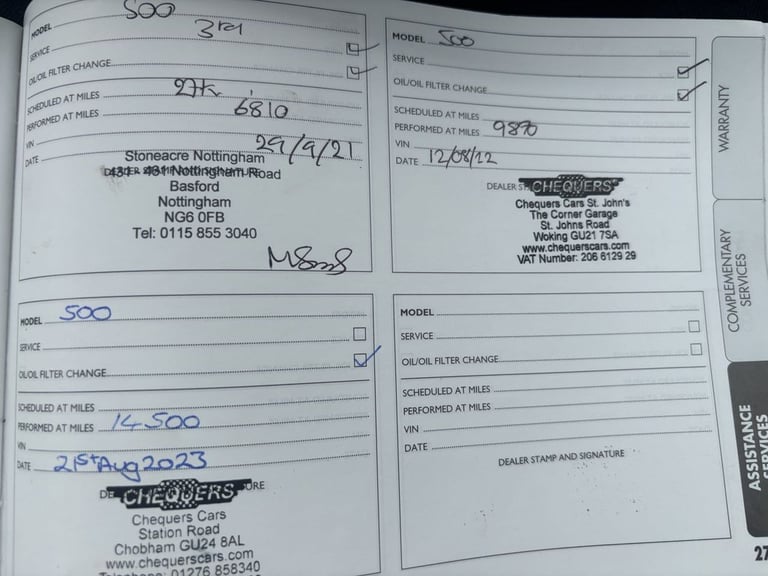 MODEL 500
SERVICE 3rd
OIL/OIL FILTER CHANGE
SCHEDULED AT MILES 27k
PERFORMED AT MILES 6810
VIN
DATE 29/9/21
Stoneacre Nottingham
Nottingham Road
Basford
Nottingham
NG6 0FB
Tel: 0115 855 3040
MODEL 500
SERVICE
OIL/OIL FILTER CHANGE
SCHEDULED AT MILES
PERFORMED AT MILES 9870
VIN
DATE 12/08/22
DEALER
CHEQUERS
Chequers Cars St. John's
The Corner Garage
St. Johns Road
Woking GU21 7SA
www.chequerscars.com
VAT Number: 206 6129 29
MODEL 500
SERVICE
OIL/OIL FILTER CHANGE
SCHEDULED AT MILES
PERFORMED AT MILES 14500
VIN
DATE 21st Aug 2023
CHEQUERS
Chequers Cars
Station Road
Chobham GU24 8AL
www.chequerscars.com
Telephone: 01276 858340
MODEL
SERVICE
OIL/OIL FILTER CHANGE
SCHEDULED AT MILES
PERFORMED AT MILES
VIN
DATE
DEALER STAMP AND SIGNATURE
WARRANTY
COMPLEMENTARY
SERVICES
ASSISTANCE
SERVICES
27